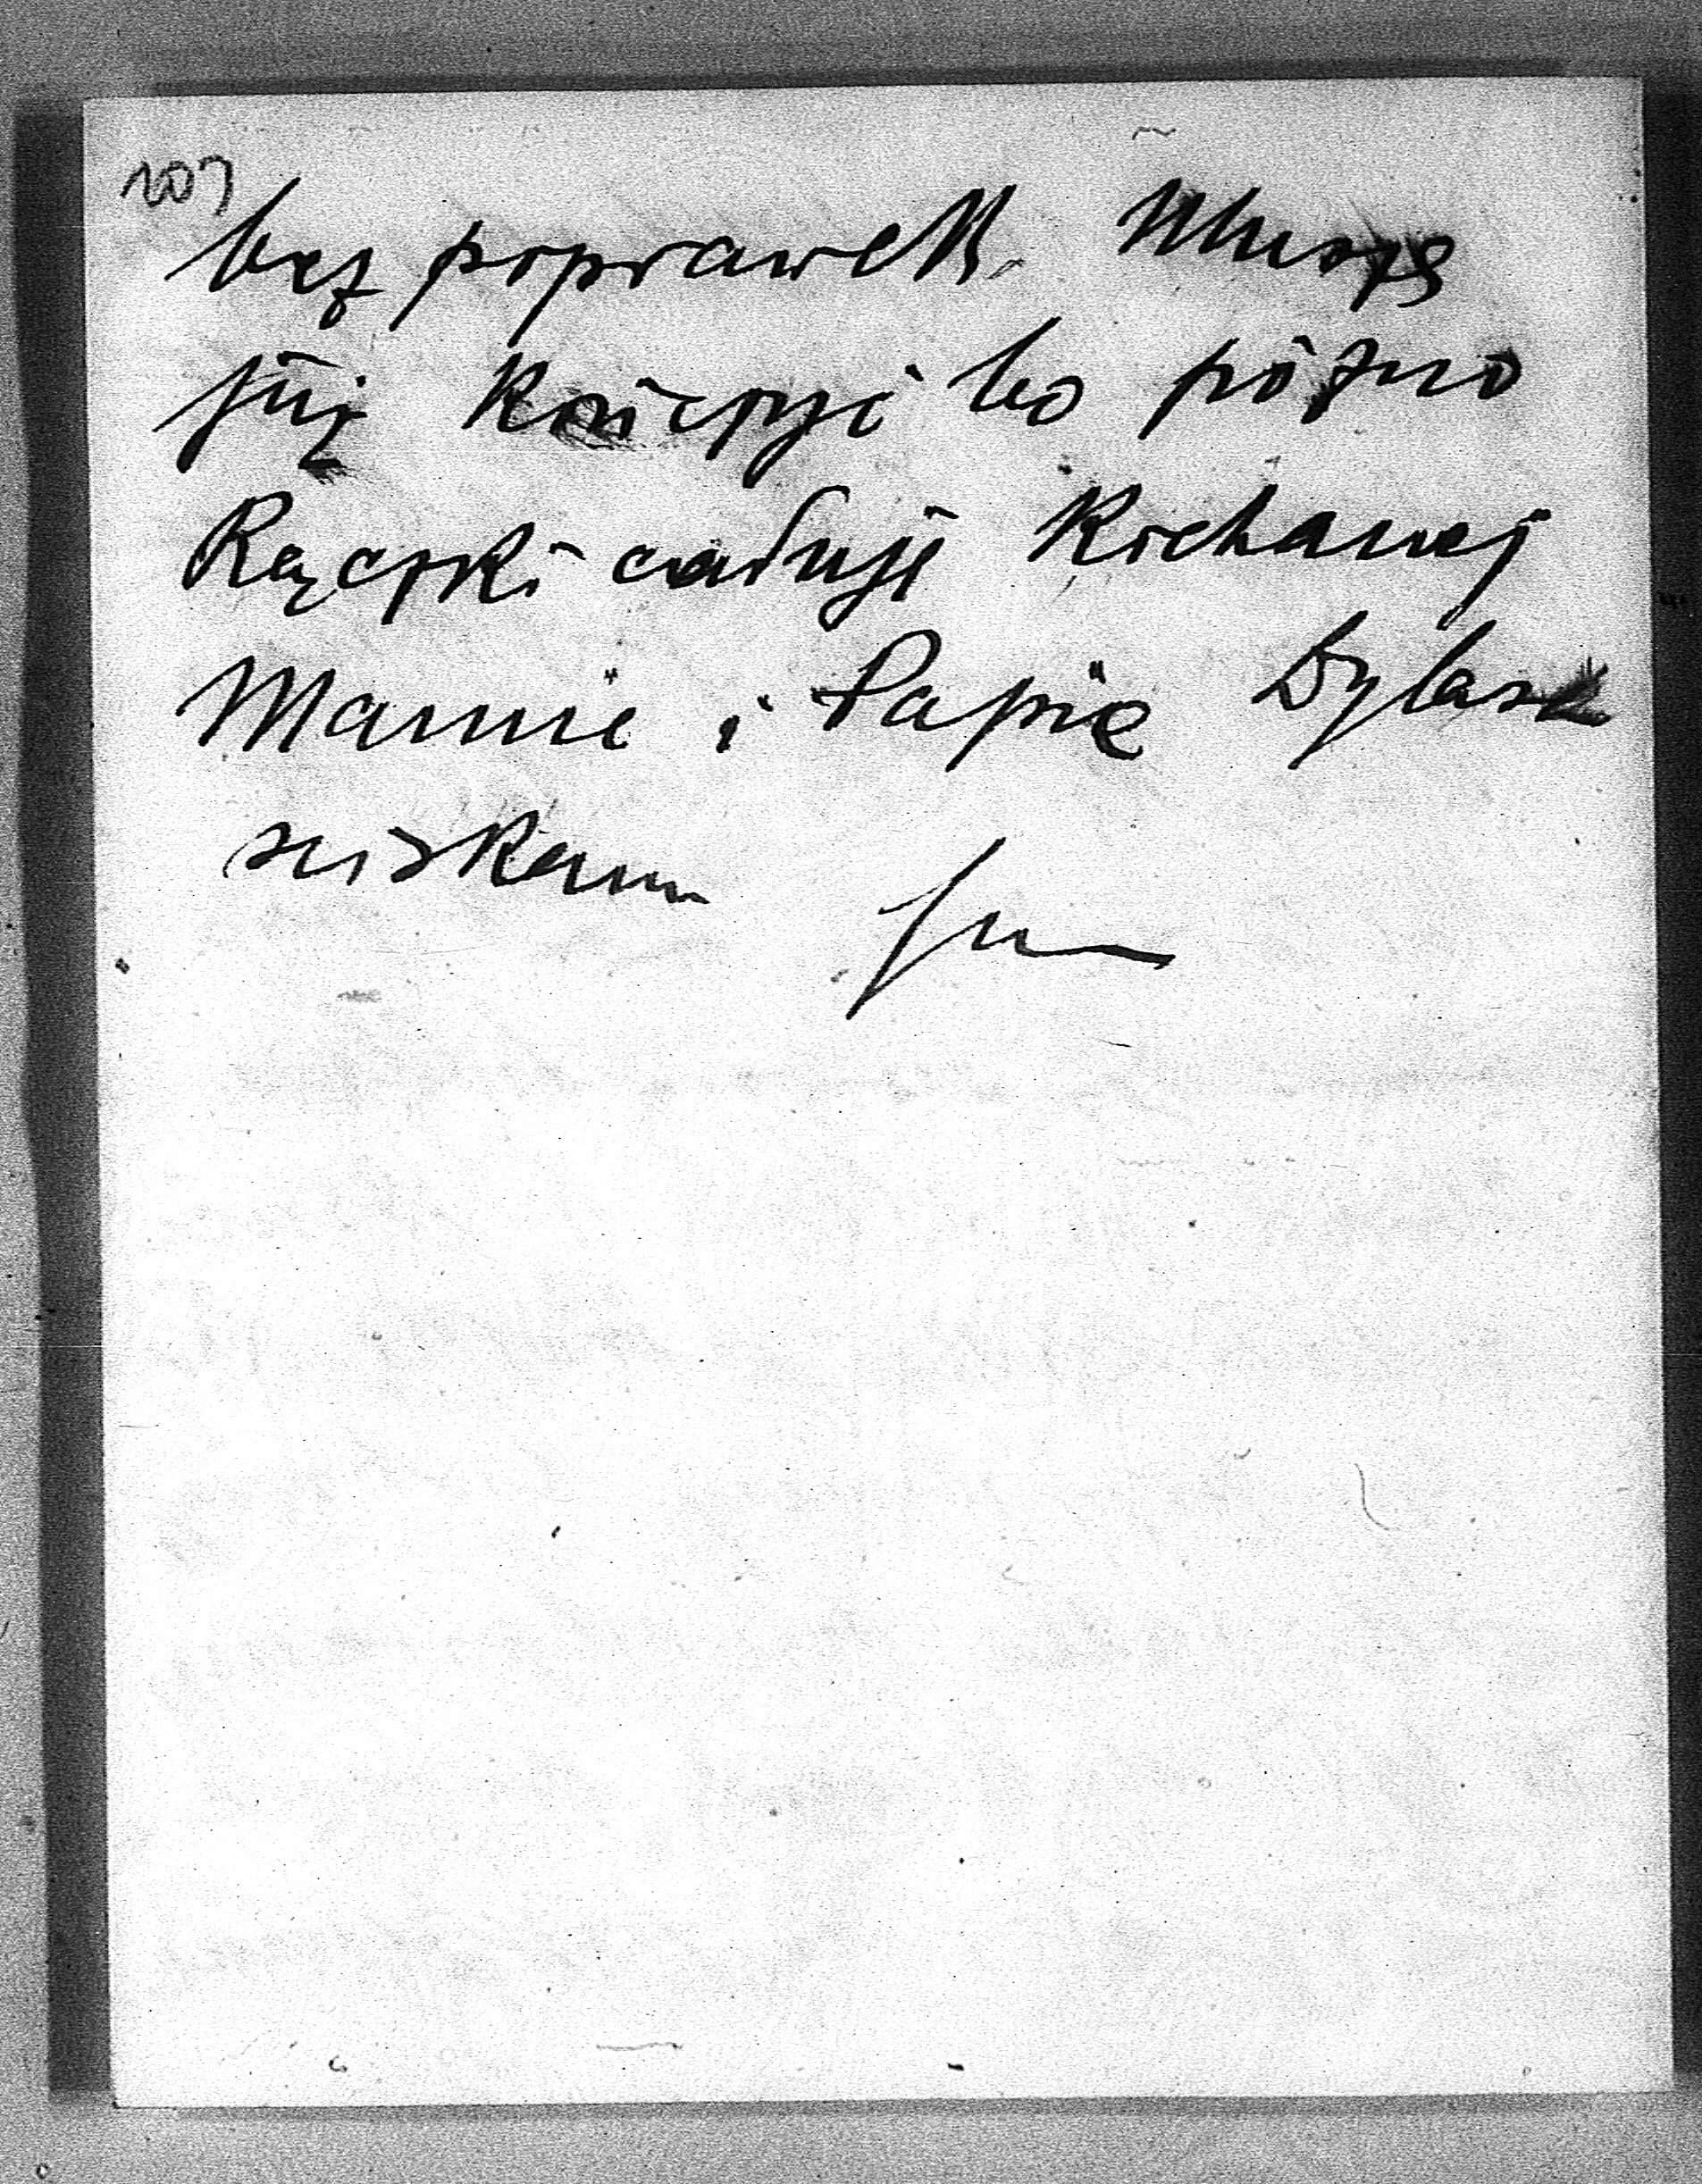 107
bez poprawek. Muszę
już kończyć bo późno
Rączki całuję Kochanej
Mamie i Papie Dylasa
ściskam Jan